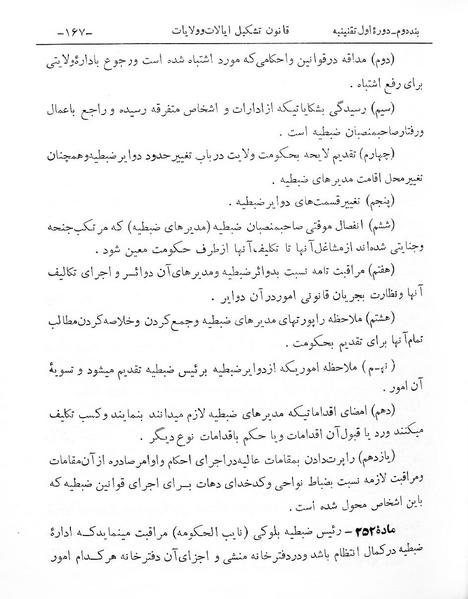 بند دوم ـ دورهٔ اول تقنینیه قانون تشکیل ایالات و ولایات ـ۱۶۷ـ
(دوم) مداقه در قوانین و احکامی که مورد اشتباه شده است و رجوع بادارهٔ ولایتی
برای رفع اشتباه .
(سیم) رسیدگی بشکایاتیکه از ادارات و اشخاص متفرقه رسیده و راجع باعمال
و رفتار صاحبمنصبان ضبطیه است .
(چهارم) تقدیم لایحه بحکومت ولایت در باب تغییر حدود دوایر ضبطیه و همچنان
تغییر محل اقامت مدیرهای ضبطیه .
(پنجم) تغییر قسمت‌های دوایر ضبطیه .
(ششم) انفصال موقتی صاحبمنصبان ضبطیه (مدیرهای ضبطیه) که مرتکب جنحه
و جنایتی شده‌اند از مشاغل آنها تا تکلیف آنها از طرف حکومت معین شود .
(هفتم) مراقبت تامه نسبت بدوائر ضبطیه و مدیرهای آن دوائر و اجرای تکالیف
آنها و نظارت بجریان قانونی امور در آن دوایر .
(هشتم) ملاحظه راپورتهای مدیرهای ضبطیه و جمع کردن و خلاصه کردن مطالب
تمام آنها برای تقدیم بحکومت .
(نهم) ملاحظه اموریکه از دوایر ضبطیه برئیس ضبطیه تقدیم میشود و تسویهٔ
آن امور .
(دهم) امضای اقداماتیکه مدیرهای ضبطیه لازم میدانند بنمایند و کسب تکلیف
میکنند و رد یا قبول آن اقدامات و یا حکم باقدامات نوع دیگر .
(یازدهم) راپرت دادن بمقامات عالیه در اجرای احکام و اوامر صادره از آن مقامات
و مراقبت لازمه نسبت بضباط نواحی و کدخدای دهات بـرای اجرای قوانین ضبطیه که
باین اشخاص محول شده است .
مادهٔ ۲۵۲ ـ رئیس ضبطیه بلوکی (نایب الحکومه) مراقبت مینماید که ادارهٔ
ضبطیه در کمال انتظام باشد و در دفترخانه منشی و اجزای آن دفترخانه هر کدام امور